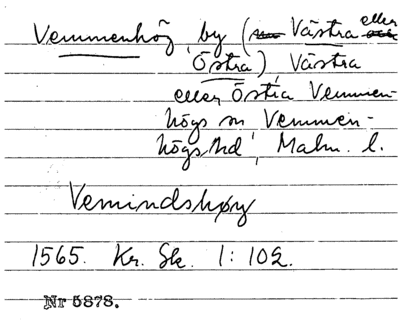 Vemmenhög by (Västra eller
Östra) Västra
eller Östra Vemmen-
högs sn Vemmen-
högs hd, Malm. l.
Vemindshøy
1565. Kr. Sk. 1: 102.
Nr 5878.